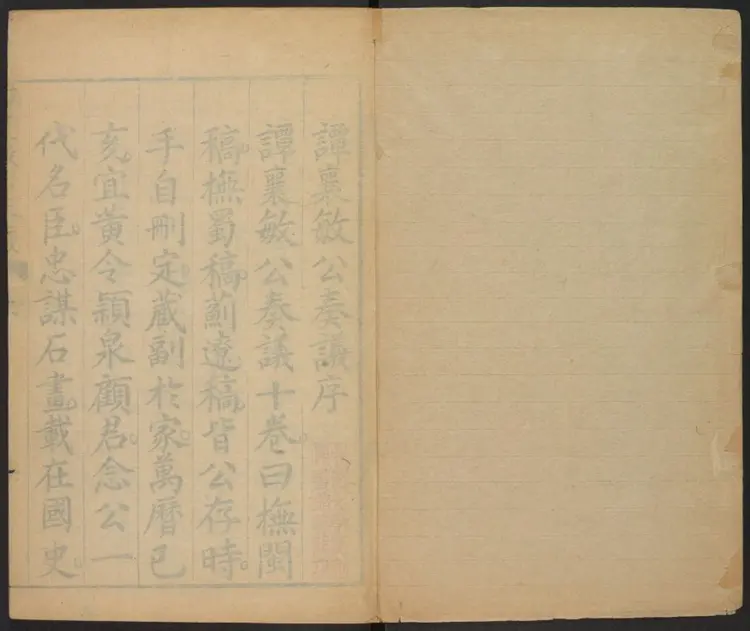 譚襄敏公奏議序
譚襄敏公奏議十卷。曰撫閩
稿。撫蜀稿。薊遼稿。皆公存時。
手自刪定。藏副於家。萬曆己
亥。宜黃令穎泉顧君。念公一
代名臣。忠謀石畫。載在國史。